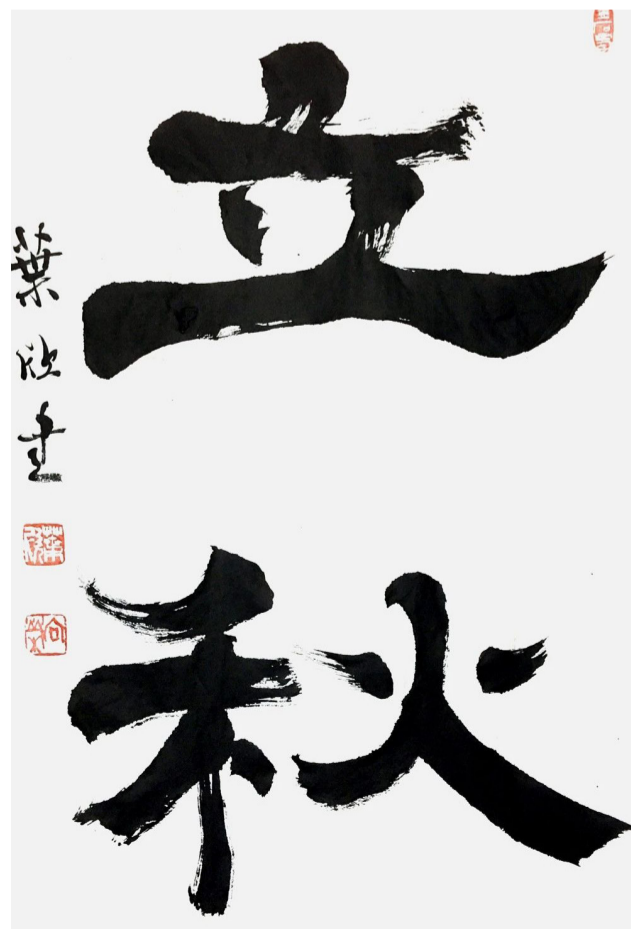 立秋
葉欣書